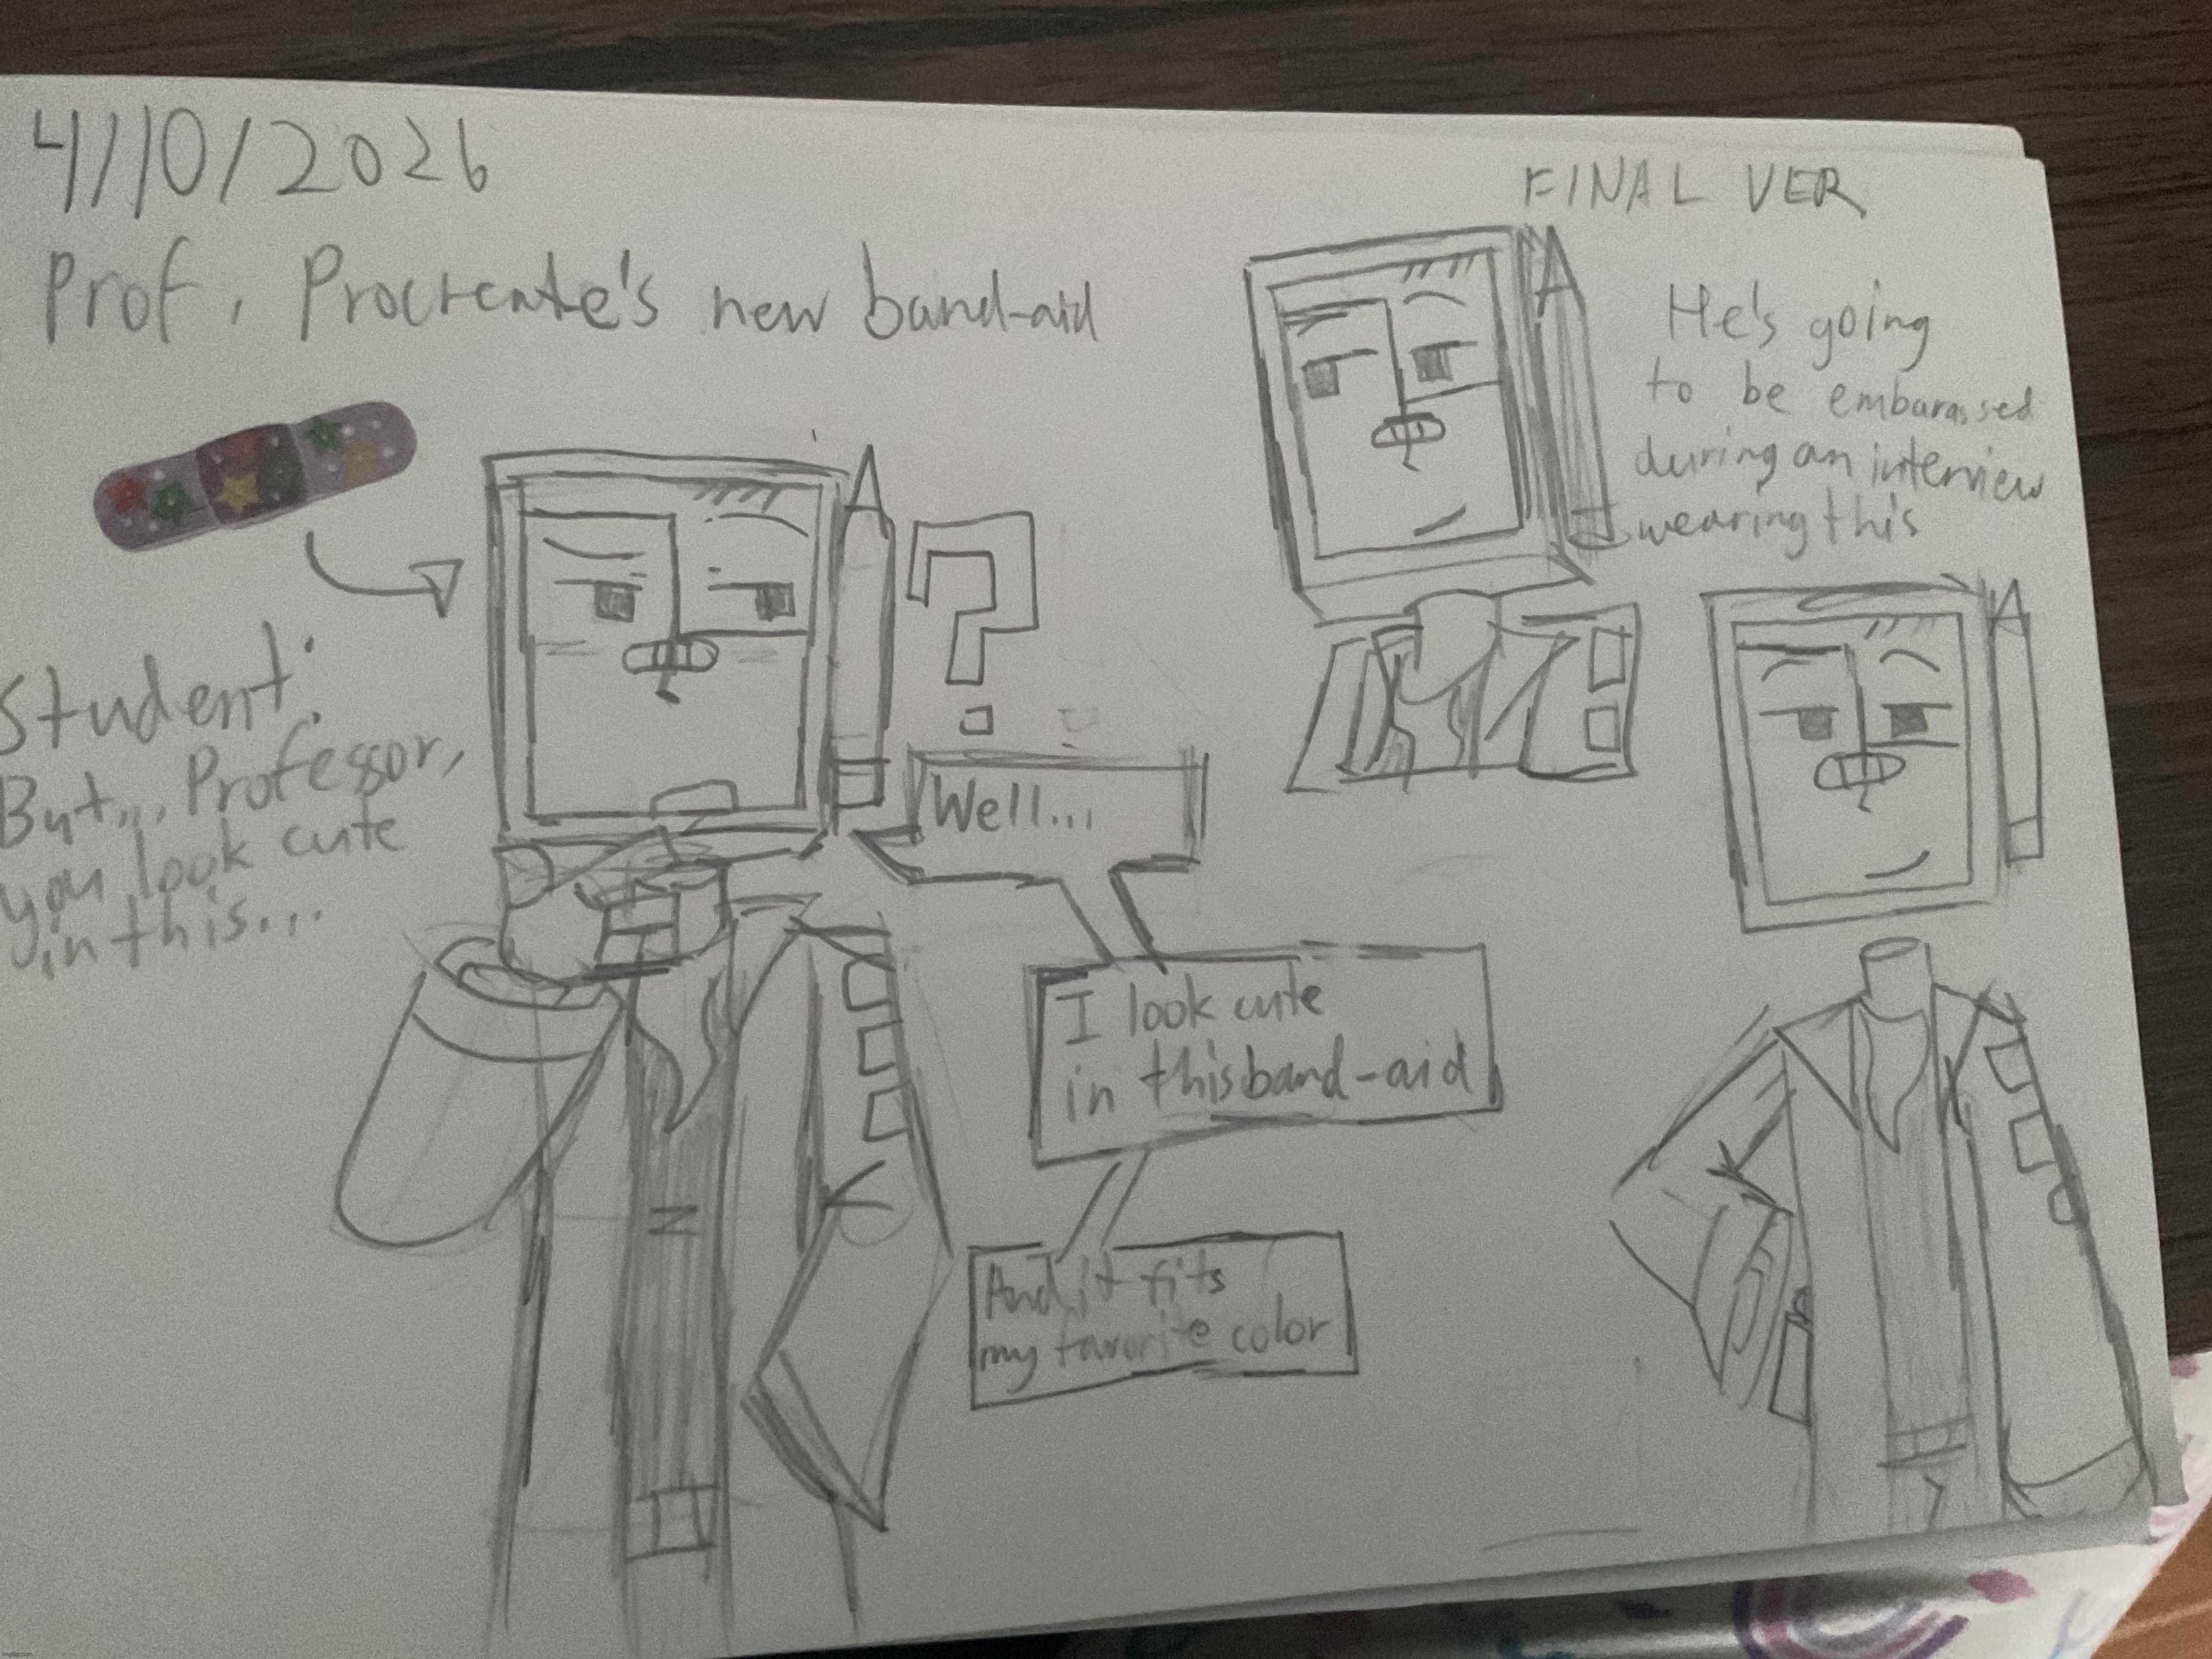 4/10/2026
Prof. Procreate's new band-aid
FINAL VER
He's going
to be embarassed
during an interview
wearing this
Student:
But... Professor,
you look cute
in this...
?
Well...
I look cute
in this band-aid
And it fits
my favorite color
imgflip.com